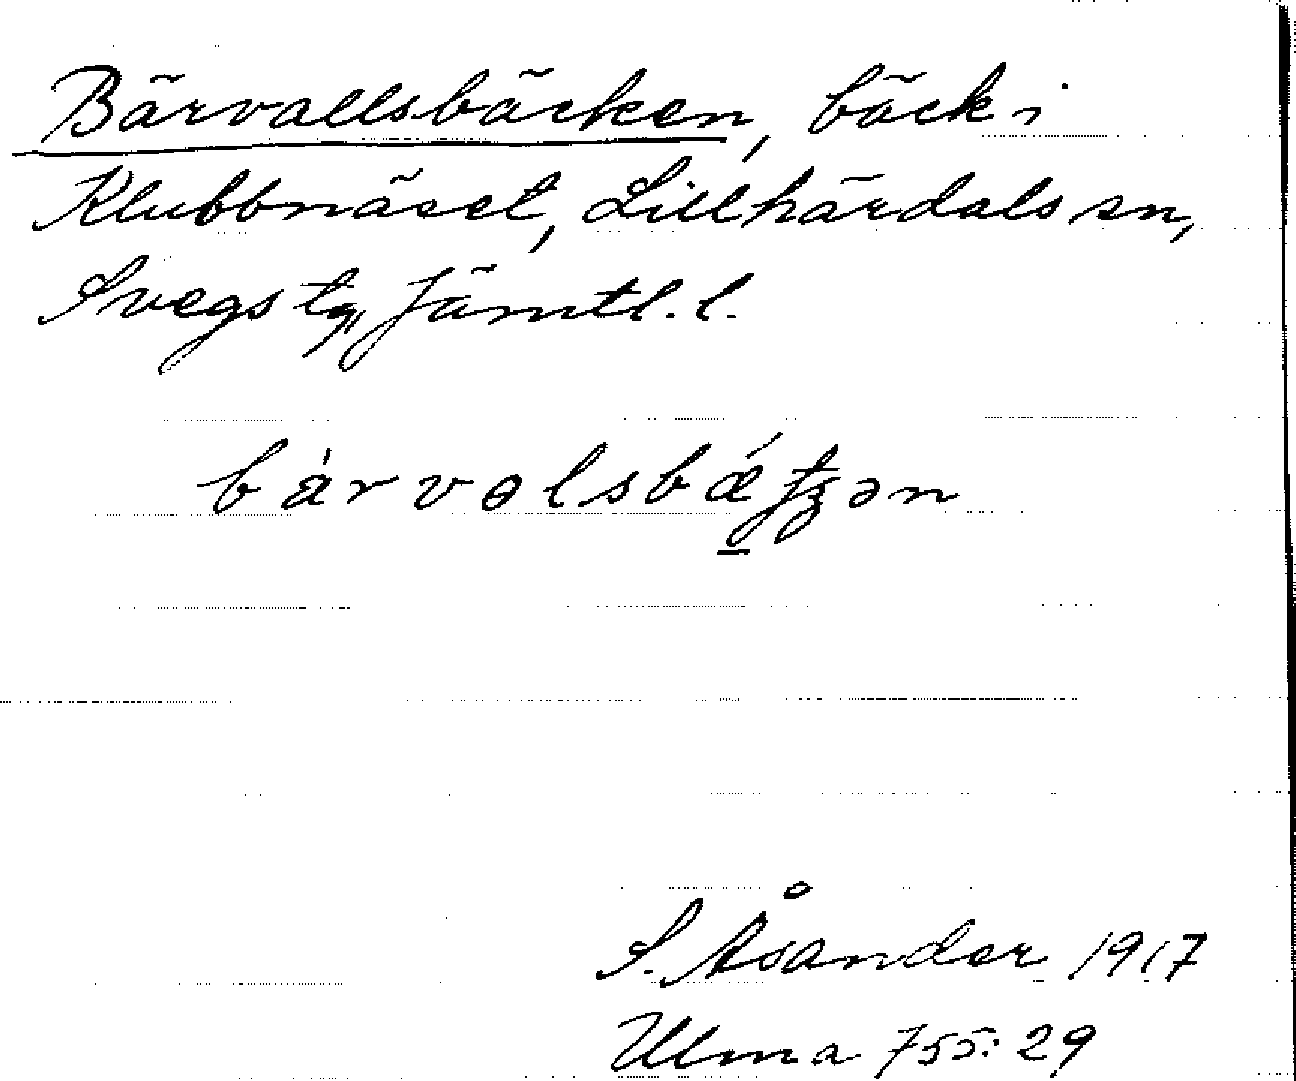 Bärvallsbäcken, bäck i
Klubbnäset, Lillhärdals sn,
Svegs tg, Jämtl. l.
S. Åsander 1917
Ulma 755:29